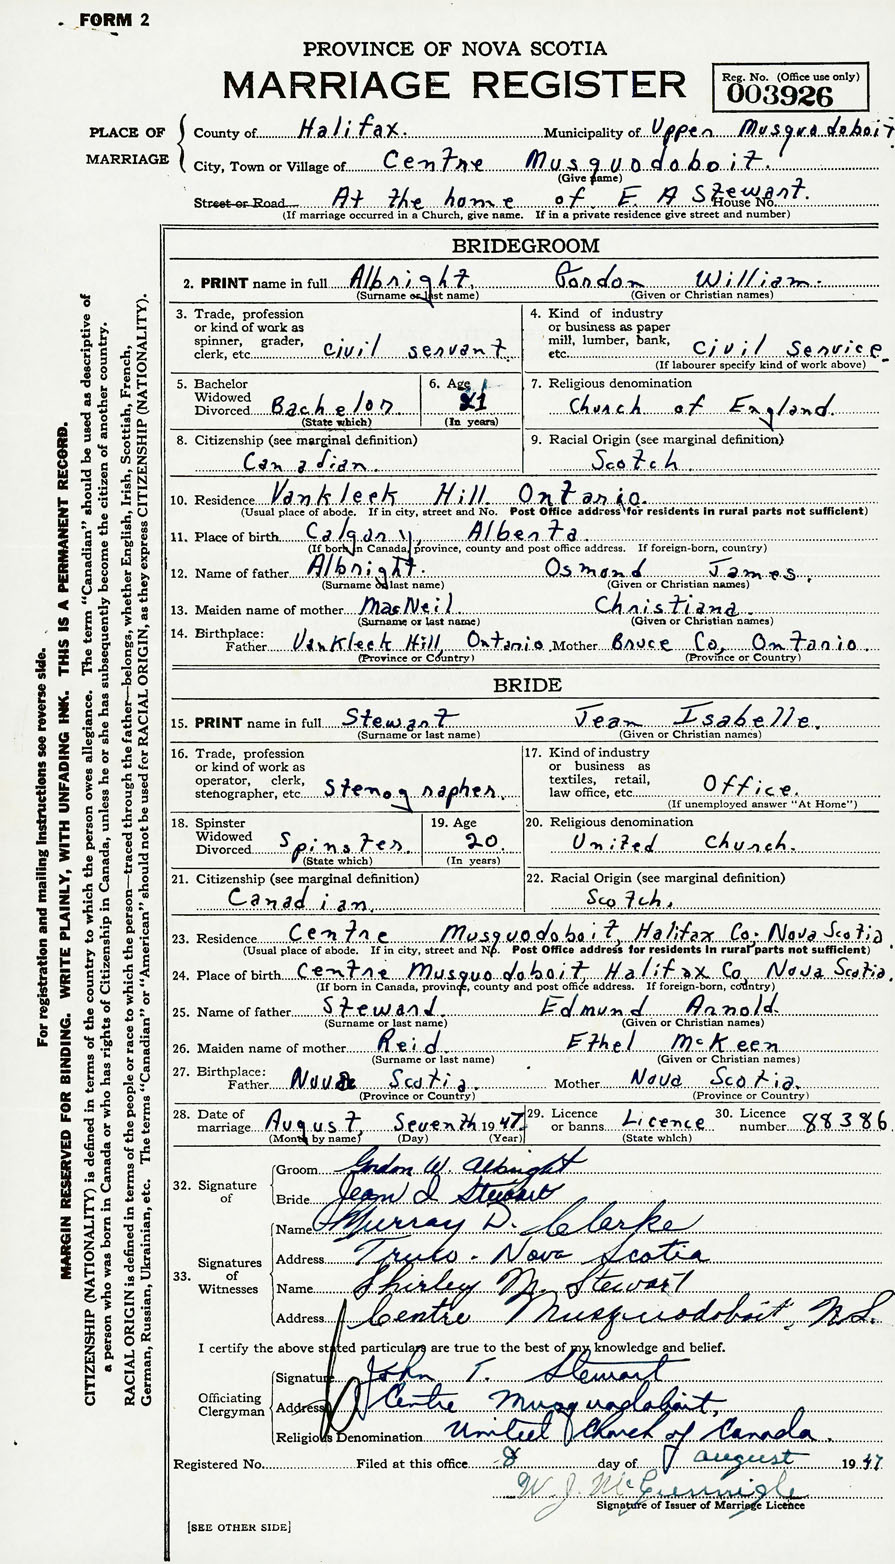 FORM 2
PROVINCE OF NOVA SCOTIA
MARRIAGE REGISTER
Reg. No. (Office use only)
003926
PLACE OF MARRIAGE
County of Halifax. Municipality of Upper Musquodoboit
City, Town or Village of Centre Musquodoboit.
(Give name)
Street or Road At the home of E A Stewart.
House No.
(If marriage occurred in a Church, give name. If in a private residence give street and number)
BRIDEGROOM
2. PRINT name in full Albright, Gordon William.
(Surname or last name) (Given or Christian names)
3. Trade, profession or kind of work as spinner, grader, clerk, etc. civil servant
4. Kind of industry or business as paper mill, lumber, bank, etc. Civil Service
(If labourer specify kind of work above)
5. Bachelor Widowed Divorced Bachelor
(State which)
6. Age 21
(In years)
7. Religious denomination
Church of England.
8. Citizenship (see marginal definition)
Canadian.
9. Racial Origin (see marginal definition)
Scotch.
10. Residence Vankleek Hill Ontario.
(Usual place of abode. If in city, street and No. Post Office address for residents in rural parts not sufficient)
11. Place of birth Calgary, Alberta.
(If born in Canada, province, county and post office address. If foreign-born, country)
12. Name of father Albright. Osmond James.
(Surname or last name) (Given or Christian names)
13. Maiden name of mother MacNeil Christiana.
(Surname or last name) (Given or Christian names)
14. Birthplace:
Father Vankleek Hill, Ontario. Mother Bruce Co, Ontario.
(Province or Country) (Province or Country)
BRIDE
15. PRINT name in full Stewart Jean Isabelle.
(Surname or last name) (Given or Christian names)
16. Trade, profession or kind of work as operator, clerk, stenographer, etc. Stenographer.
17. Kind of industry or business as textiles, retail, law office, etc. Office.
(If unemployed answer "At Home")
18. Spinster Widowed Divorced Spinster.
(State which)
19. Age
20
(In years)
20. Religious denomination
United Church.
21. Citizenship (see marginal definition)
Canadian.
22. Racial Origin (see marginal definition)
Scotch.
23. Residence Centre Musquodoboit, Halifax Co; Nova Scotia
(Usual place of abode. If in city, street and No. Post Office address for residents in rural parts not sufficient)
24. Place of birth Centre Musquodoboit, Halifax Co, Nova Scotia.
(If born in Canada, province, county and post office address. If foreign-born, country)
25. Name of father Steward. Edmund Arnold.
(Surname or last name) (Given or Christian names)
26. Maiden name of mother Reid. Ethel McKeen
(Surname or last name) (Given or Christian names)
27. Birthplace:
Father Nova Scotia. Mother Nova Scotia.
(Province or Country) (Province or Country)
28. Date of marriage August, Seventh 1947
(Month by name) (Day) (Year)
29. Licence or banns Licence
(State which)
30. Licence number 88386
32. Signature of
Groom Gordon W. Albright
Bride Jean I Stewart
33. Signatures of Witnesses
Name Murray D. Clarke
Address Truro - Nova Scotia
Name Shirley M. Stewart
Address Centre Musquodoboit, N.S.
I certify the above stated particulars are true to the best of my knowledge and belief.
Officiating Clergyman
Signature John T. Stewart
Address Centre Musquodoboit,
Religious Denomination United Church of Canada.
Registered No. Filed at this office 8 day of August 1947
Signature of Issuer of Marriage Licence
[SEE OTHER SIDE]
For registration and mailing instructions see reverse side.
MARGIN RESERVED FOR BINDING. WRITE PLAINLY, WITH UNFADING INK. THIS IS A PERMANENT RECORD.
CITIZENSHIP (NATIONALITY) is defined in terms of the country to which the person owes allegiance. The term "Canadian" should be used as descriptive of
a person who was born in Canada or who has rights of Citizenship in Canada, unless he or she has subsequently become the citizen of another country.
RACIAL ORIGIN is defined in terms of the people or race to which the person—traced through the father—belongs, whether English, Irish, Scottish, French,
German, Russian, Ukrainian, etc. The terms "Canadian" or "American" should not be used for RACIAL ORIGIN, as they express CITIZENSHIP (NATIONALITY).